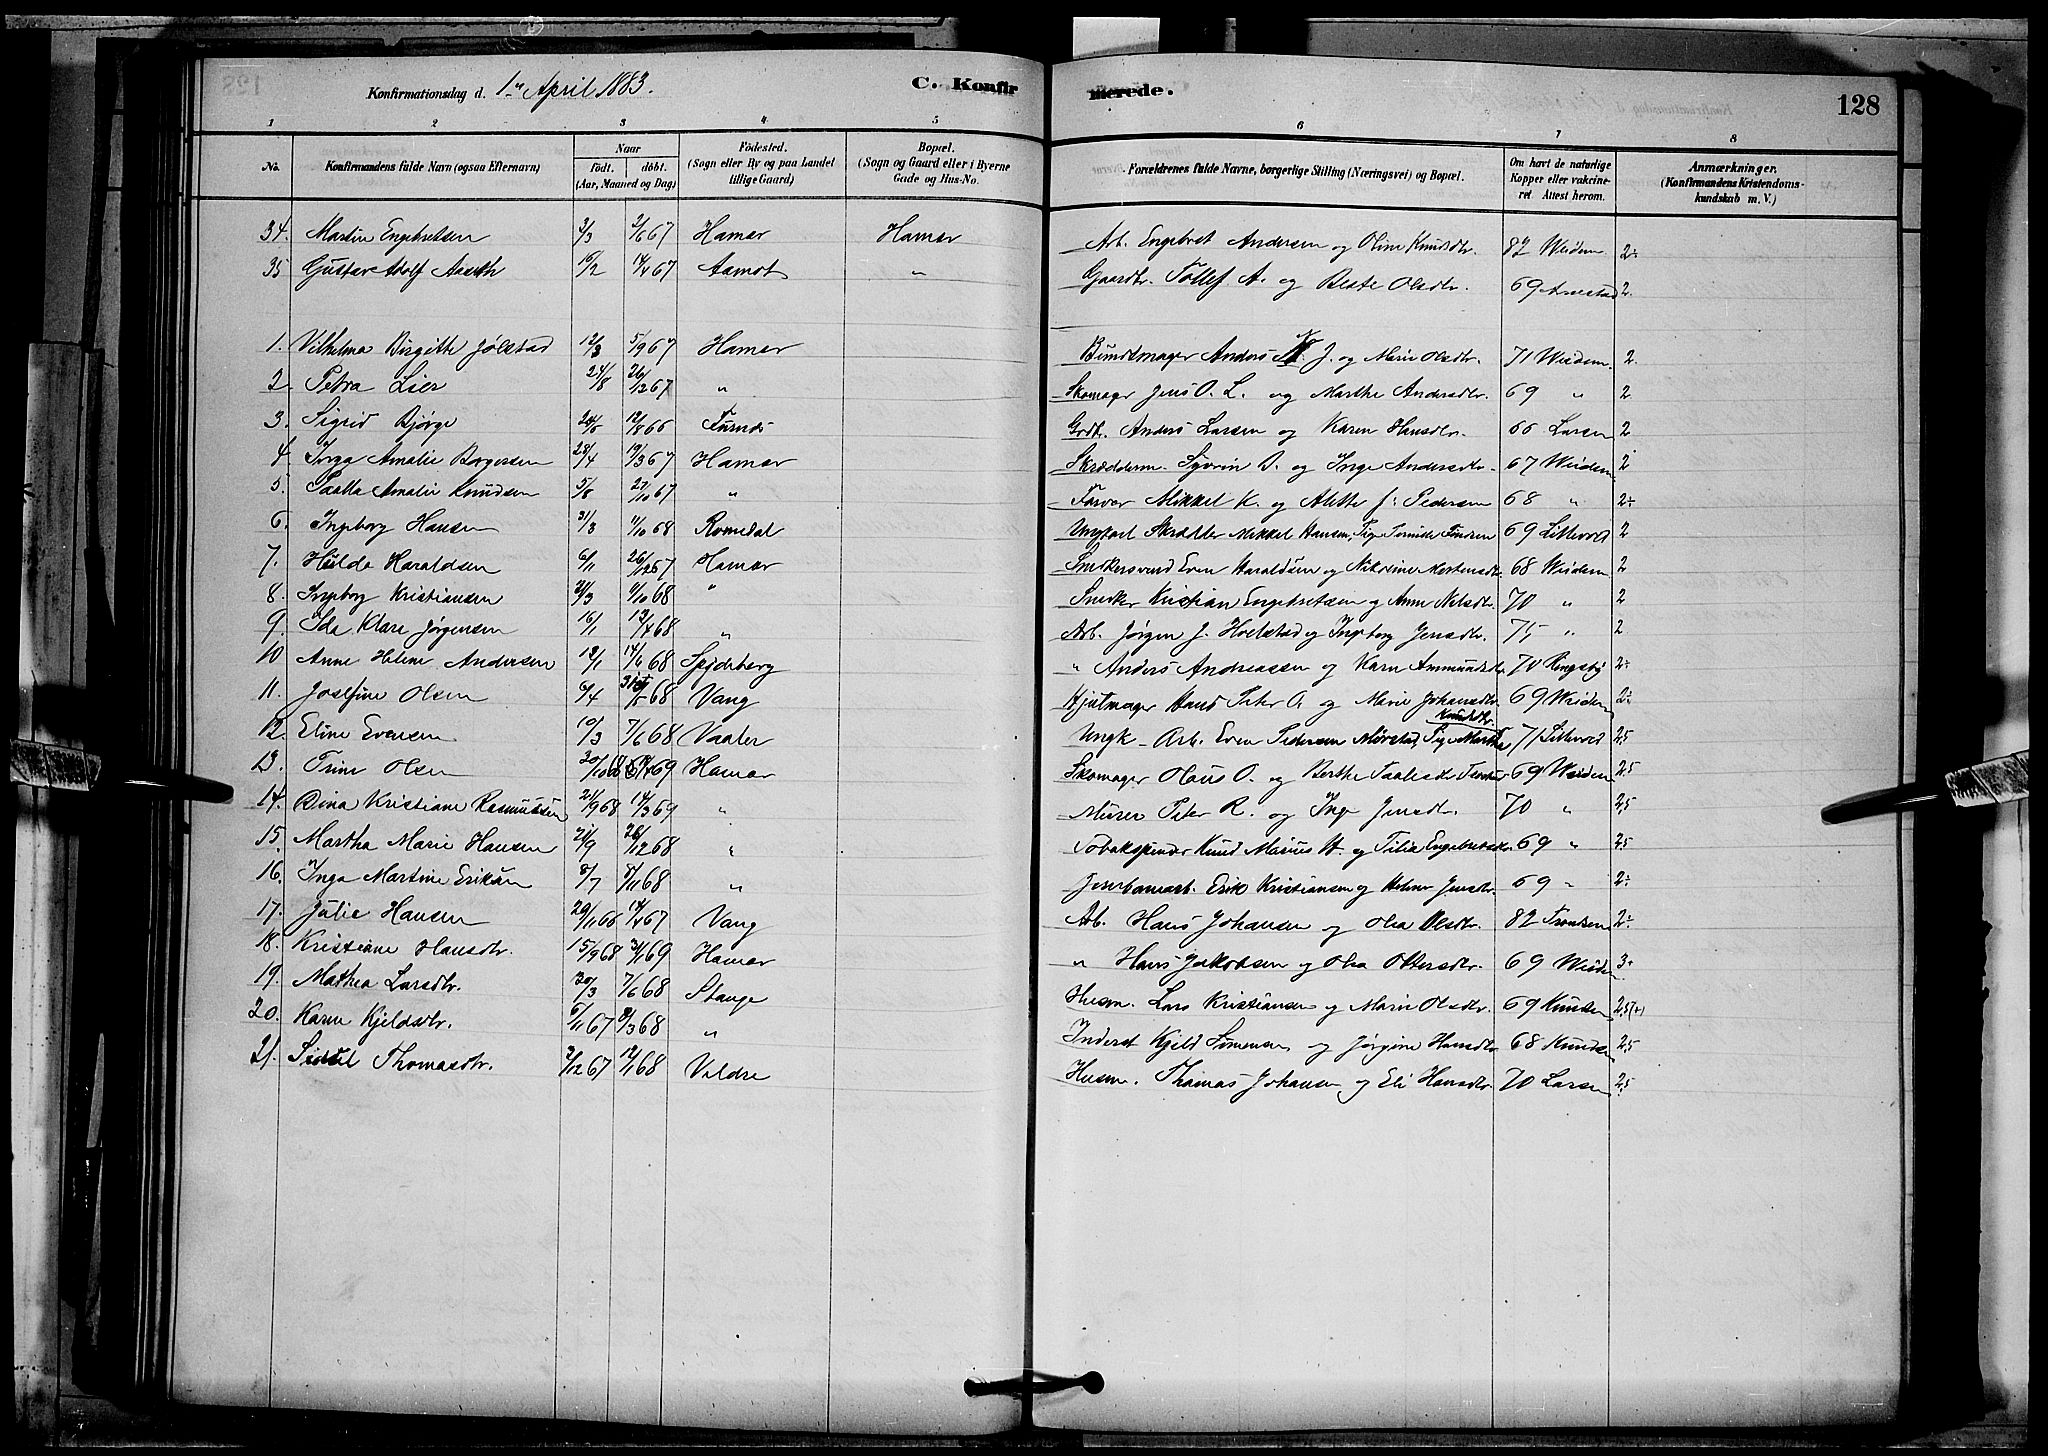 Konfirmationsdag d. 1ste April 1883. C. Konfirmerede. 128
1 2 3 4 5 6 7 8
No. Konfirmandens fulde Navn (ogsaa Efternavn) Naar født. døbt. (Aar, Maaned og Dag) Fødested. (Sogn eller By og paa Landet tillige Gaard) Bopæl. (Sogn og Gaard eller i Byerne Gade og Hus-No. Forældrenes fulde Navne, borgerlige Stilling (Næringsvei) og Bopæl. Om havt de naturlige Kopper eller vakcineret Attest herom. Anmærkninger. (Konfirmandens Kristendomskundskab m. V.)
34. Martin Engebretsen 3/3 2/6 67 Hamar Hamar Arb. Engebret Andersen og Oline Knudsdtr. 82 Weidem. 2-
35 Gustav Adolf Aaseth 16/2 14/4 67 Aamot " Gaardbr. Tollef A. og Beate Olsdtr. 69 2.
1. Vilhelma Birgitte Jølstad 12/3 5/9 67 Hamar Bundtmager Anders J. og Marie Olsdtr. 71 Weidem. 2.
2. Petra Lier 24/8 26/12 67 " Skomager Jens O. L. og Marthe Andersdtr. 69 " 2
3. Sigrid Bjørge 24/5 12/8 66 Furnæs Grdbr. Anders Larsen og Karen Hansdtr. 66 Larsen 2
4. Inga Amalie Borgersen 28/4 19/3 67 Hamar Skrædderm. Syvrin B. og Inge Andersdtr. 67 Weidem 2
5. Paulla Amalie Knudsen 5/8 27/10 67 " Farver Mikkel K. og Alette f. Pedersen 68 " 2-
6. Ingeborg Hansen 31/3 11/10 68 Romedal Ungkarl Skrædder Mikkel Hansen, Pige Tomine Findsen 69 Lillevold 2
7. Hulda Haraldsen 6/1 26/12 67 Hamar Snedkersvend Even Haraldsen og Nikoline Mortensdtr. 68 Weidem 2
8. Ingeborg Kristiansen 21/3 11/10 68 " Snedker Kristian Engebretsen og Anne Nilsdtr. 70 " 2
9. Ida Klara Jørgensen 16/1 13/4 68 " Arb. Jørgen J. Hoelstad og Ingeborg Jensdtr. 75 " 2
10 Anne Helene Andersen 12/1 14/6 68 Spydeberg " Anders Andreassen og Karn Ammundsdtr 70 Ringsby 2-
11. Josefine Olsen 6/4 31/5 68 Vang Hjulmager Hans Peter O. og Marie Johansdtr. 69 Weidem 2-
12. Eline Evensen 10/3 7/6 68 Vaaler Ungk. Arb. Even Pedersen Mørstad, Pige Marthe Knudsdtr. 71 Lillevold 2,5
13. Trine Olsen 20/10 68 4/4 69 Hamar Skomager Olaus O. og Berthe Paalsdtr 69 Weidem 2,5
14. Dina Kristiane Rasmussen 21/9 68 14/3 69 " Murer Peter R. og Inge Jensdtr. 70 " 2,5
15. Martha Marie Hansen 21/9 26/12 68 " Tobakspinder Knud Marius H. og Tilia Engebretsdtr. 69 " 2,5
16. Inga Martine Eriksen 8/7 8/11 68 " Jernbanearb. Erik Kristiansen og Helene Jensdtr. 69 " 2-
17. Julie Hansen 29/11 66 14/4 67 Vang Arb. Hans Johansen og Olea Olsdtr. 82 Trondsen 2-
18. Kristiane Hansdtr. 15/9 68 3/1 69 Hamar " Hans Jakobsen og Olea Ottersdtr. 69 Weidem 3+
19. Mathea Larsdtr. 30/3 7/6 68 Stange Husm. Lars Kristiansen og Marie Olsdtr. 69 Knudsen 2,5(+)
20. Karen Kjeldsdtr. 6/11 67 8/3 68 " Inderst Kjeld Simensen og Jørgine Hansdtr 68 Knudsen 2,5
21. Sidsel Thomasdtr. 2/12 67 12/1 68 Veldre Husm. Thomas Johansen og Eli Hansdtr. 70 Larsen 2,5